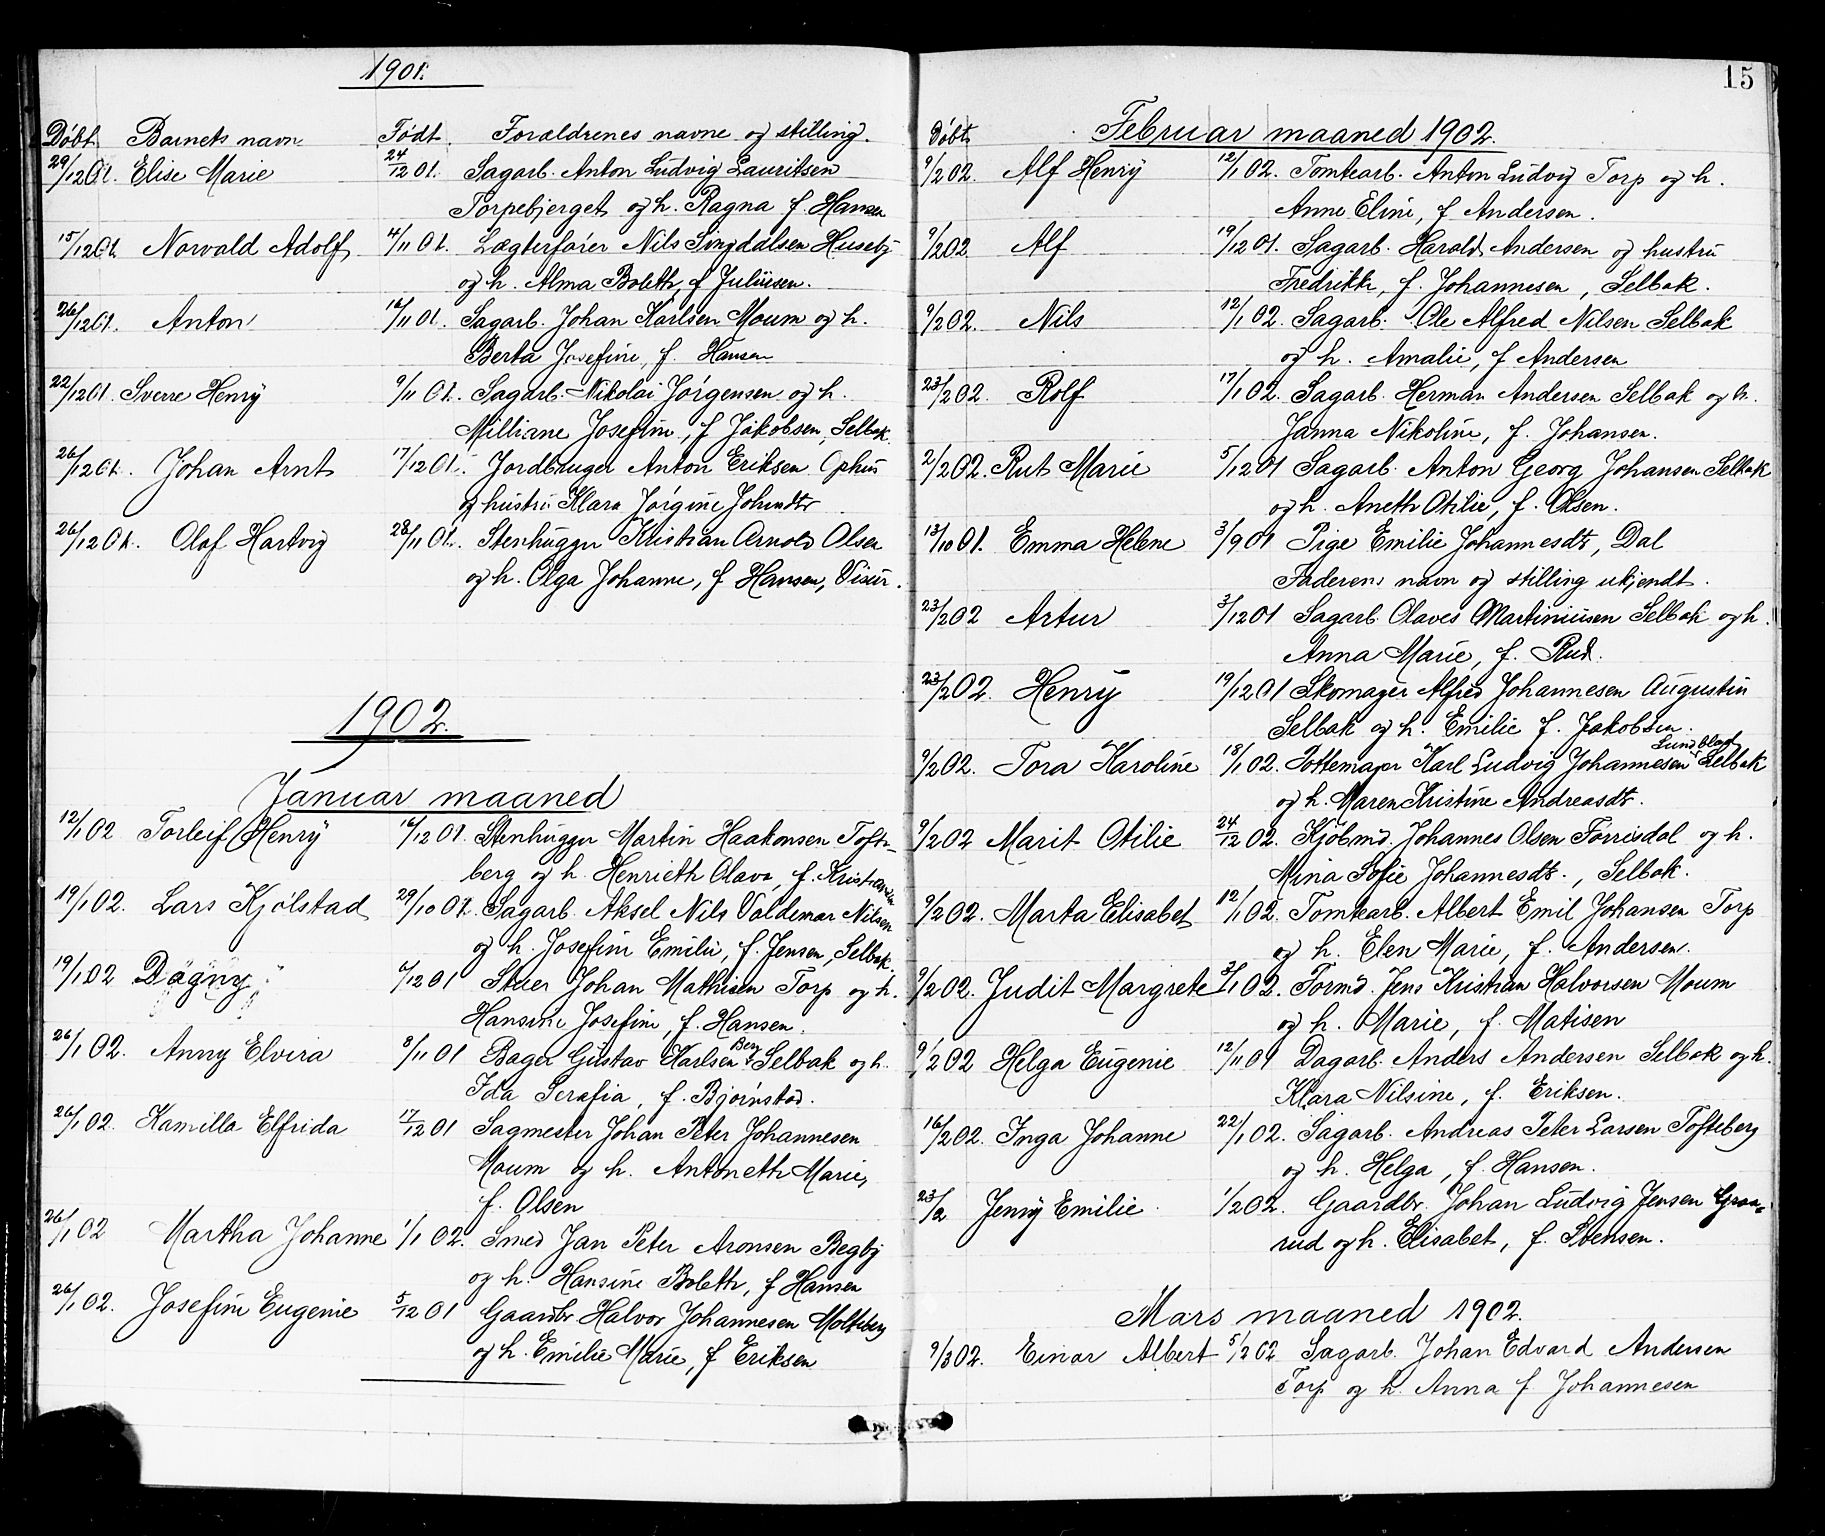 1901.
Døbt Barnets navn Født. Forældrenes navne og stilling.
29/12 01. Elise Marie 24/12 01. Sagarb. Anton Ludvig Lauritsen
Torpebjerget og h. Ragna f. Hansen
15/12 01. Norvald Adolf 4/11 01. Lægterfører Nils Huseby
og h. Alma Boleth, f Juliusen.
26/12 01. Anton 16/11 01. Sagarb. Johan Karlsen Moum og h.
Berta Josefine, f. Hansen
22/12 01 Sverre Henry 9/11 01. Sagarb. Nikolai Jørgensen og h.
Milliane Josefine, f Jakobsen, Selbak
26/12 01. Johan Arnt 17/12 01. Jordbruger Anton Eriksen Ophus
og hustru Klara Jørgine Johnsdtr
26/12 01. Olaf Hartvig 28/11 01. Stenhugger Kristian Arnold Olsen
og h. Olga Johanne, f Hansen, Visur.
1902.
Januar maaned
12/1 02 Torleif Henry 16/12 01. Stenhugger Martin Haakonsen Tofte-
berg og h. Henrieth Olava, f. Kristiansen
19/1 02. Lars Kjølstad 29/10 01. Sagarb. Aksel Nils Valdemar Nilsen
og h. Josefine Emilie, f. Jensen, Selbak.
19/1 02 Dagny /12 01 Stuer Johan Mathisen Torp og h.
Hansine Josefine, f. Hansen.
26/1 02. Anny Elvira 8/11 01 Bager Gustav Karlsen Berg Selbak og h.
Ida Serafia, f. Bjørnstad.
26/1 02. Kamilla Elfrida 17/12 01 Sagmester Johan Peter Johannesen
Moum og h. Antoneth Marie,
f. Olsen
26/1 02 Martha Johanne 1/1 02. Smed Jan Peter Aronsen Begby
og h. Hansine Boleth, f Hansen
26/1 02. Josefine Eugenie 5/12 01 Gaardbr. Halvor Johannesen Molteberg
og h. Emilie Marie, f Eriksen
15
Døbt Februar maaned 1902.
9/2 02. Alf Henry 12/1 02. Tomtearb. Anton Ludvig Torp og h.
Anne Eline, f Andersen.
9/2 02. Alf 19/12 01. Sagarb. Harald Andersen og hustru
Fredrikke, f. Johannesen, Selbak.
9/2 02. Nils 12/1 02. Sagarb. Ole Alfred Nilsen Selbak
og h. Amalie, f Andersen
23/2 02. Rolf 17/1 02. Sagarb. Herman Andersen Selbak og h.
Janna Nikoline, f. Johansen.
2/2 02. Rut Marie 5/12 01 Sagarb. Anton Georg Johansen Selbak
og h. Aneth Otilie, f. Olsen.
13/10 01. Emma Helene 3/9 01 Pige Emilie Johannesdtr, Dal
Faderens navn og stilling ukjendt.
23/2 02 Artur 3/12 01 Sagarb. Olaves Martiniusen Selbak og h.
Anna Marie, f. Rud.
23/2 02. Henry 19/12 01 Skomager Alfred Johannesen Augustin
Selbak og h. Emilie f. Jakobsen.
9/2 02. Tora Karoline 18/1 02. Pottemager Karl Ludvig Johannesen Lundblad Selbak
og h. Maren Kristine Andreasdtr.
9/2 02 Marit Otilie 24/12 02. Kjøbmd. Johannes Olsen Førrisdal og h.
Mina Sofie Johannesdtr., Selbak.
9/2 02. Marta Elisabet 12/1 02. Tomtearb. Albert Emil Johansen Torp
og h. Elen Marie, f. Andersen.
9/2 02. Judit Margrete 3/1 02. Formd. Jens Kristian Halvorsen Moum
og h. Marie, f. Matisen
9/2 02 Helga Eugenie 12/11 01 Dagarb. Anders Andersen Selbak og h.
Klara Nilsine, f. Eriksen.
16/2 02. Inga Johanne 22/1 02. Sagarb. Andreas Peter Larsen Tofteberg
og h. Helga, f. Hansen.
23/2 Jenny Emilie 1/2 02. Gaardbr. Johan Ludvig Jensen Graa-
rud og h. Elisabet, f. Stensen.
Mars maaned 1902.
9/3 02. Einar Albert 5/2 02 Sagarb. Johan Edvard Andersen
Torp og h. Anna f Johannesen